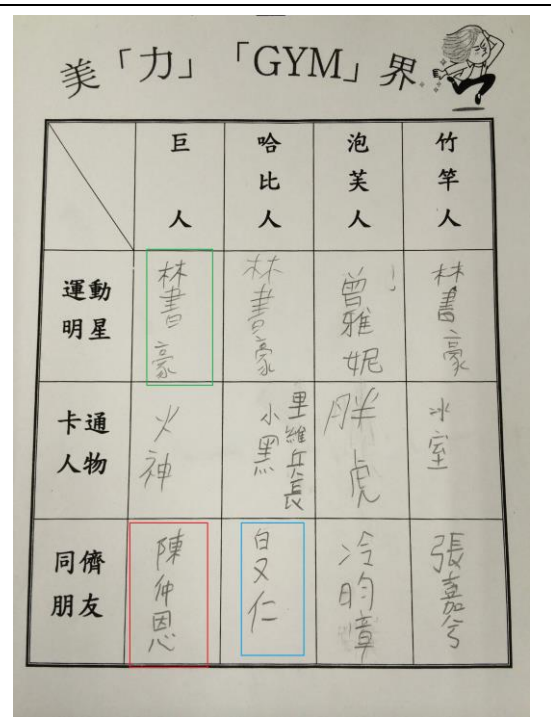 美「力」「GYM」界
巨人
哈比人
泡芙人
竹竿人
運動明星
林書豪
林書豪
曾雅妮
林書豪
卡通人物
火神
里維兵長
小黑
胖虎
冰室
同儕朋友
陳仲恩
白又仁
冷昀璋
張嘉兮